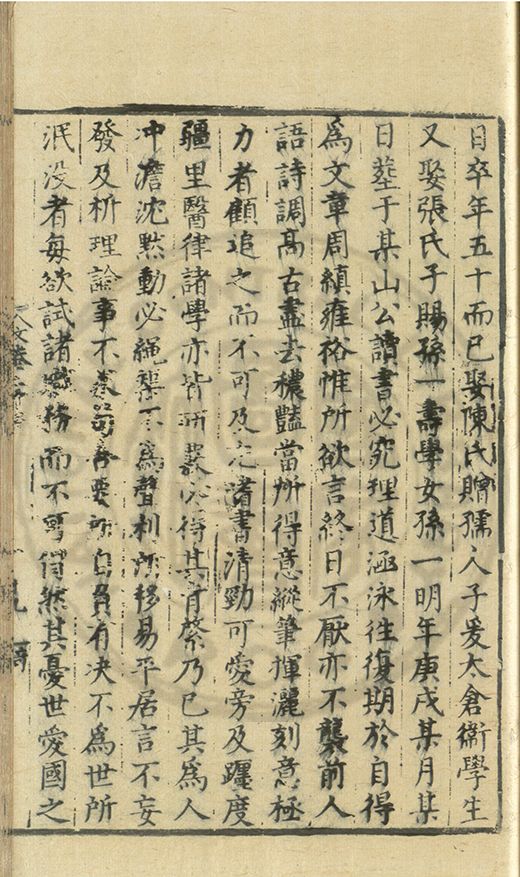 日卒年五十而已娶陳氏贈孺人子爰太倉衛學生
又娶張氏子賜孫一壽學女孫一明年庚戌某月某
日塟于某山公讀書必究理道涵泳往復期於自得
為文章周縝雍裕惟所欲言終日不厭亦不襲前人
語詩調髙古盡去穠豔當所得意縱筆揮灑刻意極
力者顧追之而不可及尤諸書清勁可愛旁及躔度
疆里醫律諸學亦皆研覈必得其肯綮乃已其為人
冲澹沈黙動必繩榘不為聲利所移易平居言不妄
發及析理論事不 要所自負有决不為世所
泯没者每欲試諸職務而不可得然其憂世愛國之